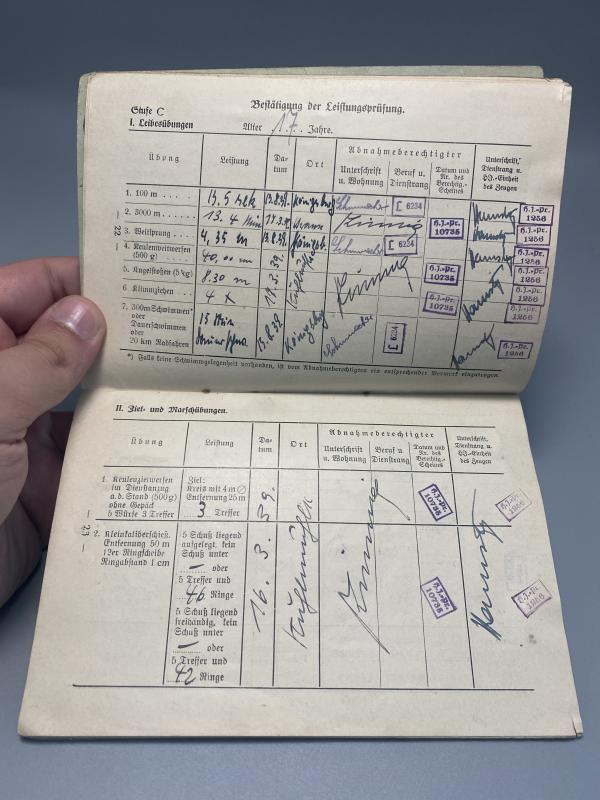 Stufe C
Bestätigung der Leistungsprüfung.
I. Leibesübungen
Alter 17 Jahre.
Übung
Leistung
Da-
tum
Ort
Abnahmeberechtigter
Unterschrift
u. Wohnung
Beruf u.
Dienstrang
Datum und
Nr. des
Berechtig.-
Scheines
Unterschrift,
Dienstrang u.
HJ.-Einheit
des Zeugen
1. 100 m . . . . .
13.8.39. Königsberg
[ 6234
H.J.-Pr.
1256
2. 3000 m . . . . .
13.4 Min
H.J.-Pr.
10735
H.J.-Pr.
1256
3. Weitsprung . . .
4,35 m 13.8.39.
[ 6234
H.J.-Pr.
1256
4. Keulenweitwerfen
(500 g) . . . . .
40,00 m
H.J.-Pr.
10735
H.J.-Pr.
1256
5. Kugelstoßen (5 kg)
8.30 m
H.J.-Pr.
1256
6. Klimmziehen . .
4 x
H.J.-Pr.
10735
H.J.-Pr.
1256
7. 300 m Schwimmen*
oder
Dauerschwimmen
oder
20 km Radfahren
13.8.39 Königsberg
[ 6234
H.J.-Pr.
1256
*) Falls keine Schwimmgelegenheit vorhanden, ist vom Abnahmeberechtigten ein entsprechender Vermerk einzutragen.
— 22 —
II. Ziel- und Marschübungen.
Übung
Leistung
Da-
tum
Ort
Abnahmeberechtigter
Unterschrift
u. Wohnung
Beruf u.
Dienstrang
Datum und
Nr. des
Berechtig.-
Scheines
Unterschrift,
Dienstrang u.
HJ.-Einheit
des Zeugen
1. Keulenzielwerfen
im Dienstanzug
a. d. Stand (500 g)
ohne Gepäck
5 Würfe 3 Treffer
Ziel:
Kreis mit 4 m ∅
Entfernung 25 m
3 Treffer
H.J.-Pr.
10735
H.J.-Pr.
1256
2. Kleinkaliberschieß.
Entfernung 50 m
12er Ringscheibe
Ringabstand 1 cm
5 Schuß liegend
aufgelegt, kein
Schuß unter
— oder
5 Treffer und
46 Ringe
5 Schuß liegend
freihändig, kein
Schuß unter
— oder
5 Treffer und
42 Ringe
16. 3. 39.
H.J.-Pr.
10735
H.J.-Pr.
1256
— 23 —